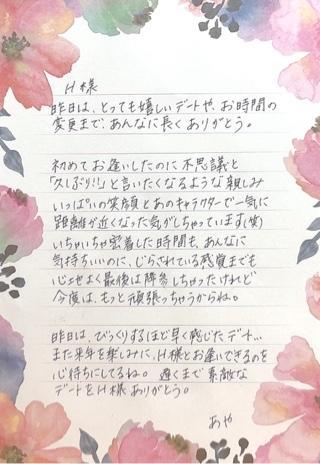 H様
昨日は、とっても嬉しいデートや、お時間の
変更まで、あんなに長くありがとう。
初めてお逢いしたのに不思議と
「久しぶり!」と言いたくなるような親しみ
いっぱいの笑顔とあのキャラクターで一気に
距離が近くなった気がしちゃっています(笑)
いちゃいちゃ密着した時間も、あんなに
気持ちいいのに、じらされている感覚までも
心地よく最後は降参しちゃったけれど
今度は、もっと頑張っちゃうからね。
昨日は、びっくりするほど早く感じたデート...
また来年を楽しみに、H様とお逢いできるのを
心待ちにしてるね。遅くまで素敵な
デートをH様ありがとう。
あや